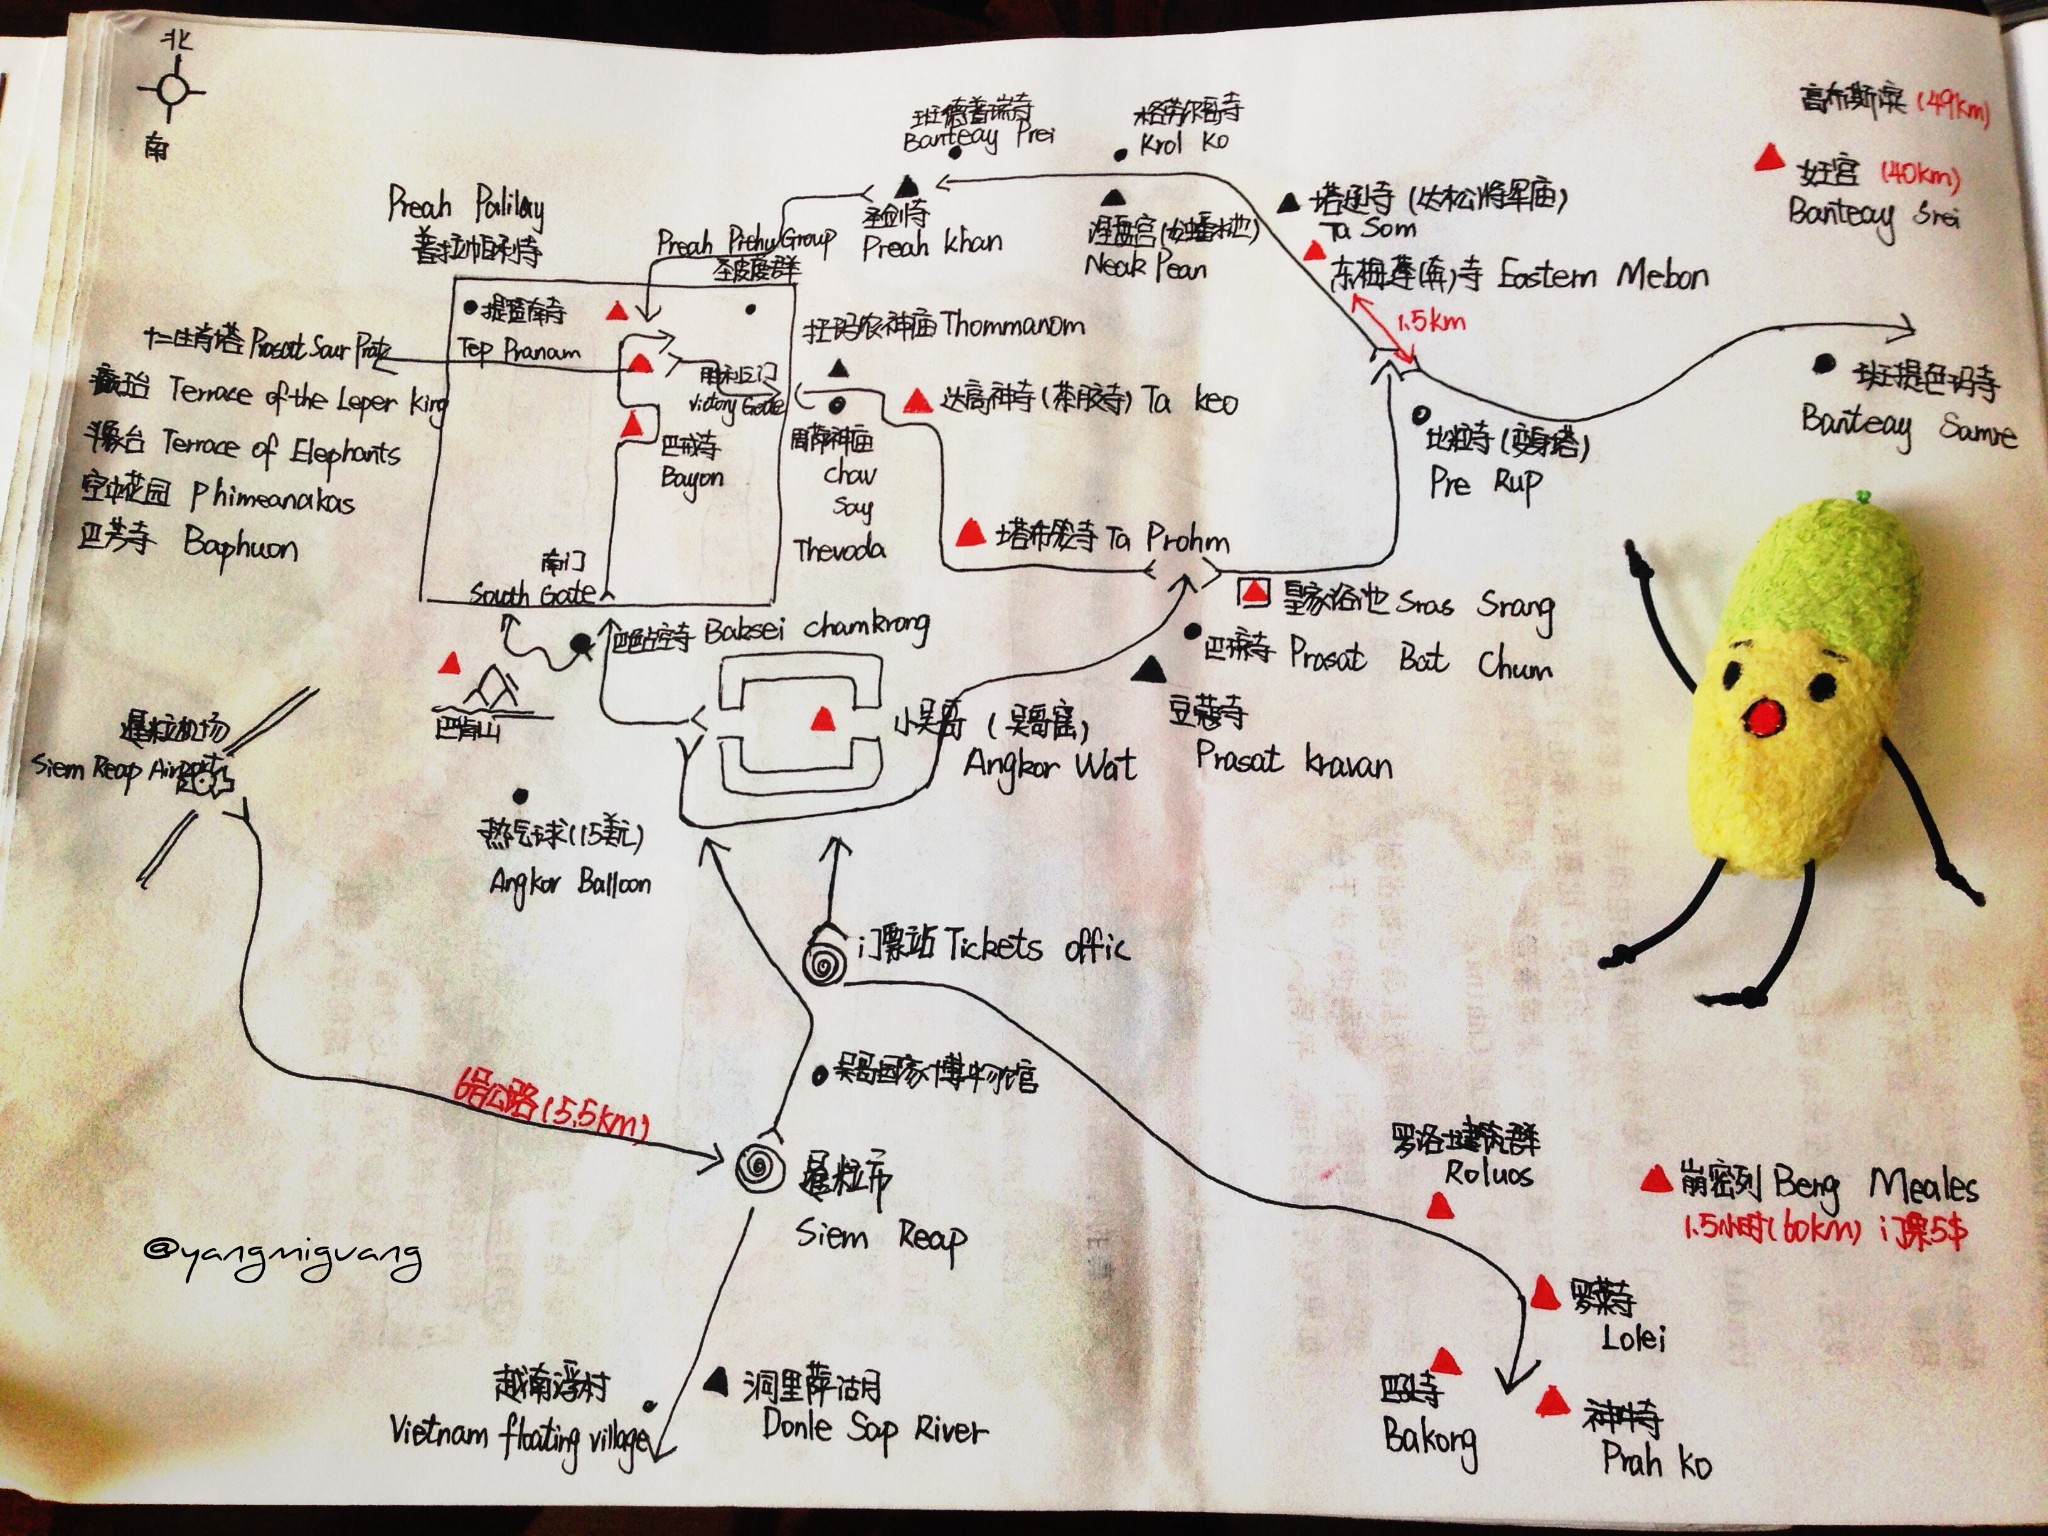 北
南
班德普瑞寺
Banteay Prei
格劳尔哥寺
Krol Ko
高布斯滨 (49km)
女王宫 (40km)
Banteay Srei
Preah Palilay
普拉帕利寺
Preah Pithu Group
圣皮度群
圣剑寺
Preah Khan
涅盘宫(龙蟠水池)
Neak Pean
塔逊寺 (达松将军庙)
Ta Som
东梅莲(奔)寺 Eastern Mebon
1.5km
提蓝南寺
Tep Pranam
十二生肖塔 Prasat Saur Pratz
Terrace of the Leper King
斗象台 Terrace of Elephants
空中花园 Phimeanakas
巴芳寺 Baphuon
胜利之门
Victory Gate
巴戎寺
Bayon
南门
South Gate
托玛农神庙 Thommanom
周萨神庙
Chav
Say
Thevoda
达高神寺 (茶胶寺) Ta Keo
塔布隆寺 Ta Prohm
比粒寺 (变身塔)
Pre Rup
班提色玛寺
Banteay Samre
皇家浴池 Sras Srang
巴琼寺 Prasat Bat Chum
豆蔻寺
Prasat Kravan
Baksei Chamkrong
巴肯山
小吴哥 (吴哥窟)
Angkor Wat
暹粒机场
Siem Reap Airport
热气球(15美元)
Angkor Balloon
门票站 Tickets offic
吴哥国家博物馆
6号公路(5.5km)
暹粒市
Siem Reap
@yangmiguang
越南浮村
Vietnam floating village
洞里萨湖
Donle Sap River
罗洛士建筑群
Roluos
崩密列 Beng Meales
1.5小时(60km) 门票5$
罗莱寺
Lolei
巴孔寺
Bakong
神牛寺
Prah Ko